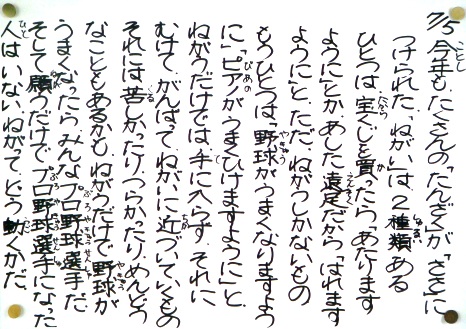 7/5 今年も、たくさんの「たんざく」が、「ささ」に
つけられた。「ねがい」は、2種類ある
ひとつは宝くじを買ったら「あたります
ように」とか、あした遠足だから「はれます
ように」と、ただ、ねがうしかないもの
もうひとつは「野球がうまくなりますよう
に」「ピアノがうまくひけますように」と、
ねがうだけでは、手に入らず、それに
むけて、がんばって、ねがいに近づいていくもの
それには苦しかったり、つらかったり、めんどう
なこともあるかも、ねがうだけで野球が
うまくなったら、みんなプロ野球選手だ。
そして願うだけでプロ野球選手になった
人はいない。ねがって、どう動くかだ。